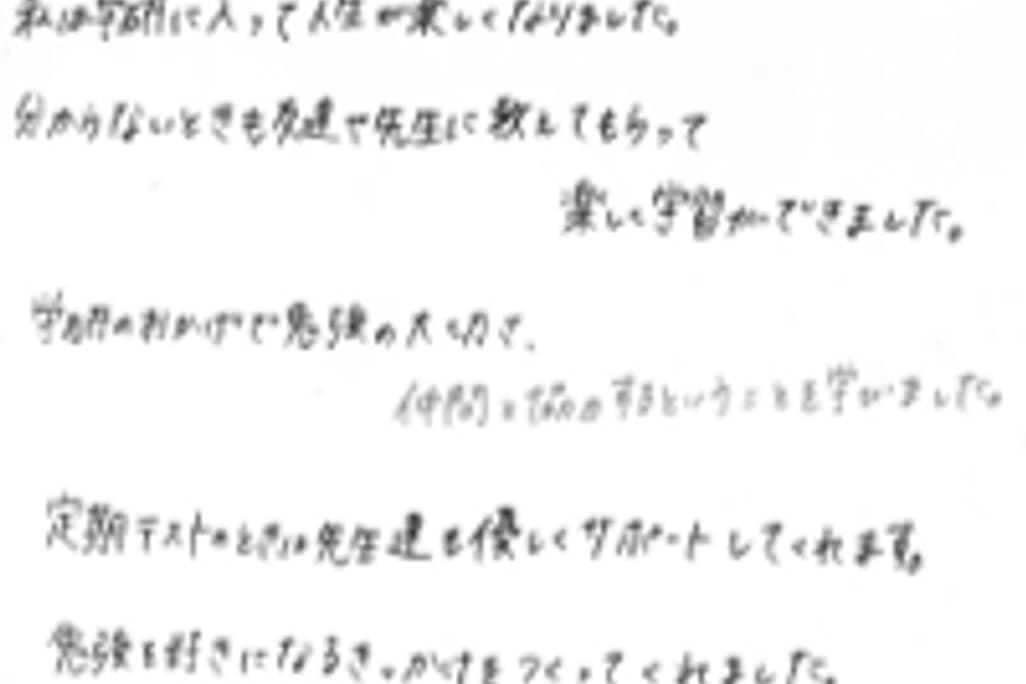 私は学研に入って人生が楽しくなりました。
分からないときも友達や先生に教えてもらって
楽しく学習ができました。
学研のおかげで勉強の大切さ、
仲間と協力するということを学びました。
定期テストのときは先生達も優しくサポートしてくれます。
勉強を好きになるきっかけをつくってくれました。